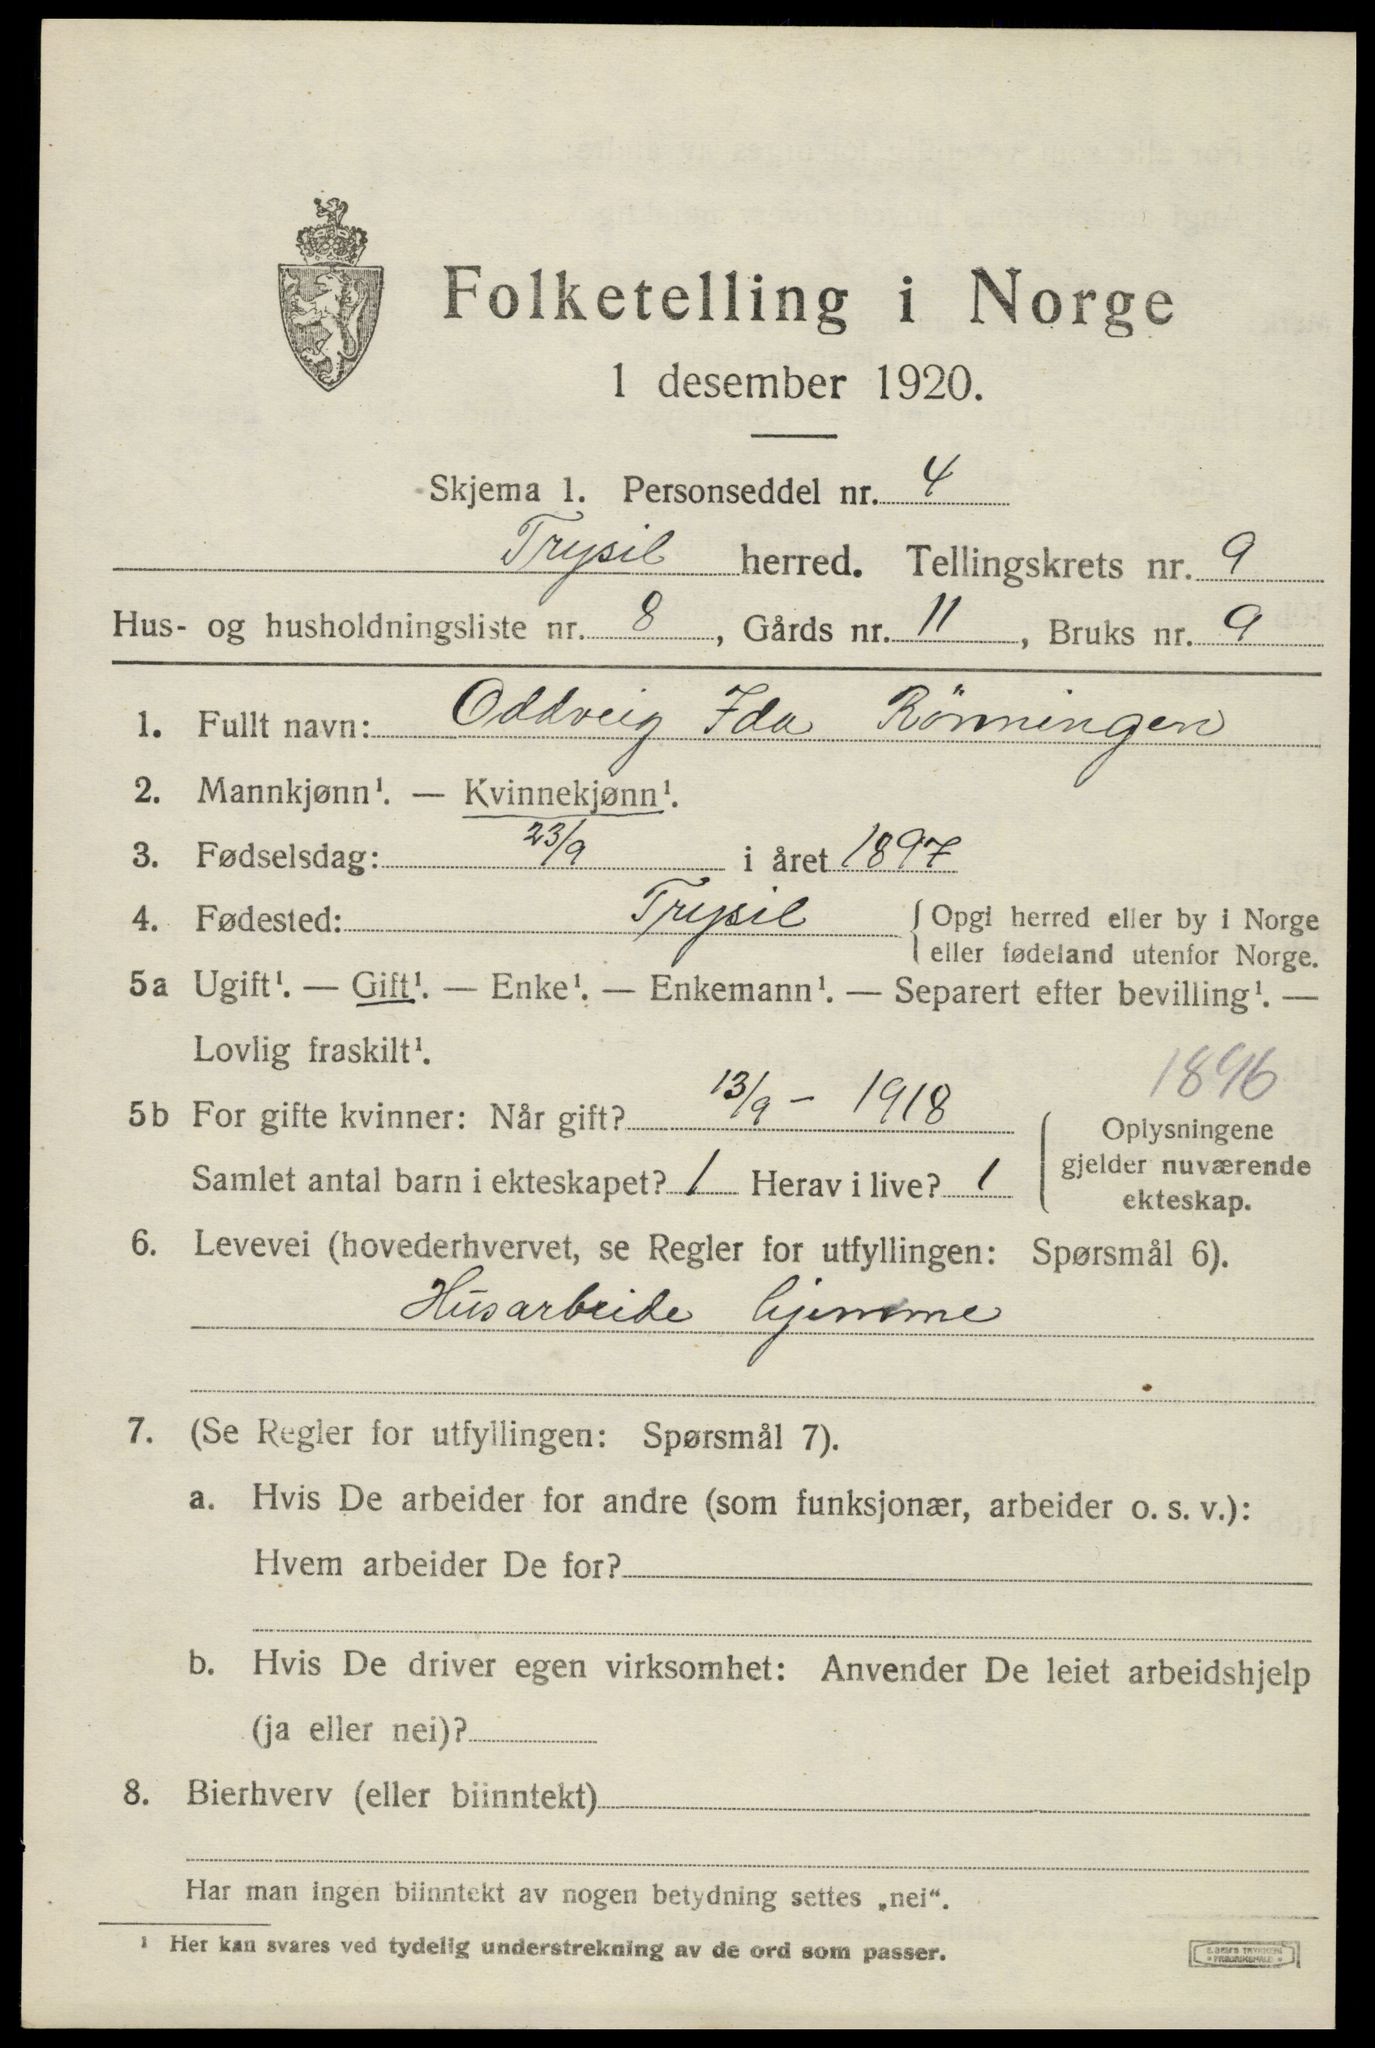 Folketelling i Norge
1 desember 1920.
Skjema 1. Personseddel nr. 4
Trysil herred. Tellingskrets nr. 9
Hus- og husholdningsliste nr. 8, Gårds nr. 11, Bruks nr. 9
1. Fullt navn: Oddveig Ida Rönningen
2. Mannkjønn¹. — Kvinnekjønn¹.
3. Fødselsdag: 23/9 i året 1897
4. Fødested: Trysil { Opgi herred eller by i Norge
eller fødeland utenfor Norge.
5a Ugift¹. — Gift¹. — Enke¹. — Enkemann¹. — Separert efter bevilling¹. —
Lovlig fraskilt¹.
1896
5b For gifte kvinner: Når gift? 13/9 - 1918
Samlet antal barn i ekteskapet? 1 Herav i live? 1
Oplysningene
gjelder nuværende
ekteskap.
6. Levevei (hovederhvervet, se Regler for utfyllingen: Spørsmål 6).
Husarbeide hjemme
7. (Se Regler for utfyllingen: Spørsmål 7).
a. Hvis De arbeider for andre (som funksjonær, arbeider o. s. v.):
Hvem arbeider De for?
b. Hvis De driver egen virksomhet: Anvender De leiet arbeidshjelp
(ja eller nei)?
8. Bierhverv (eller biinntekt)
Har man ingen biinntekt av nogen betydning settes „nei“.
¹ Her kan svares ved tydelig understrekning av de ord som passer.